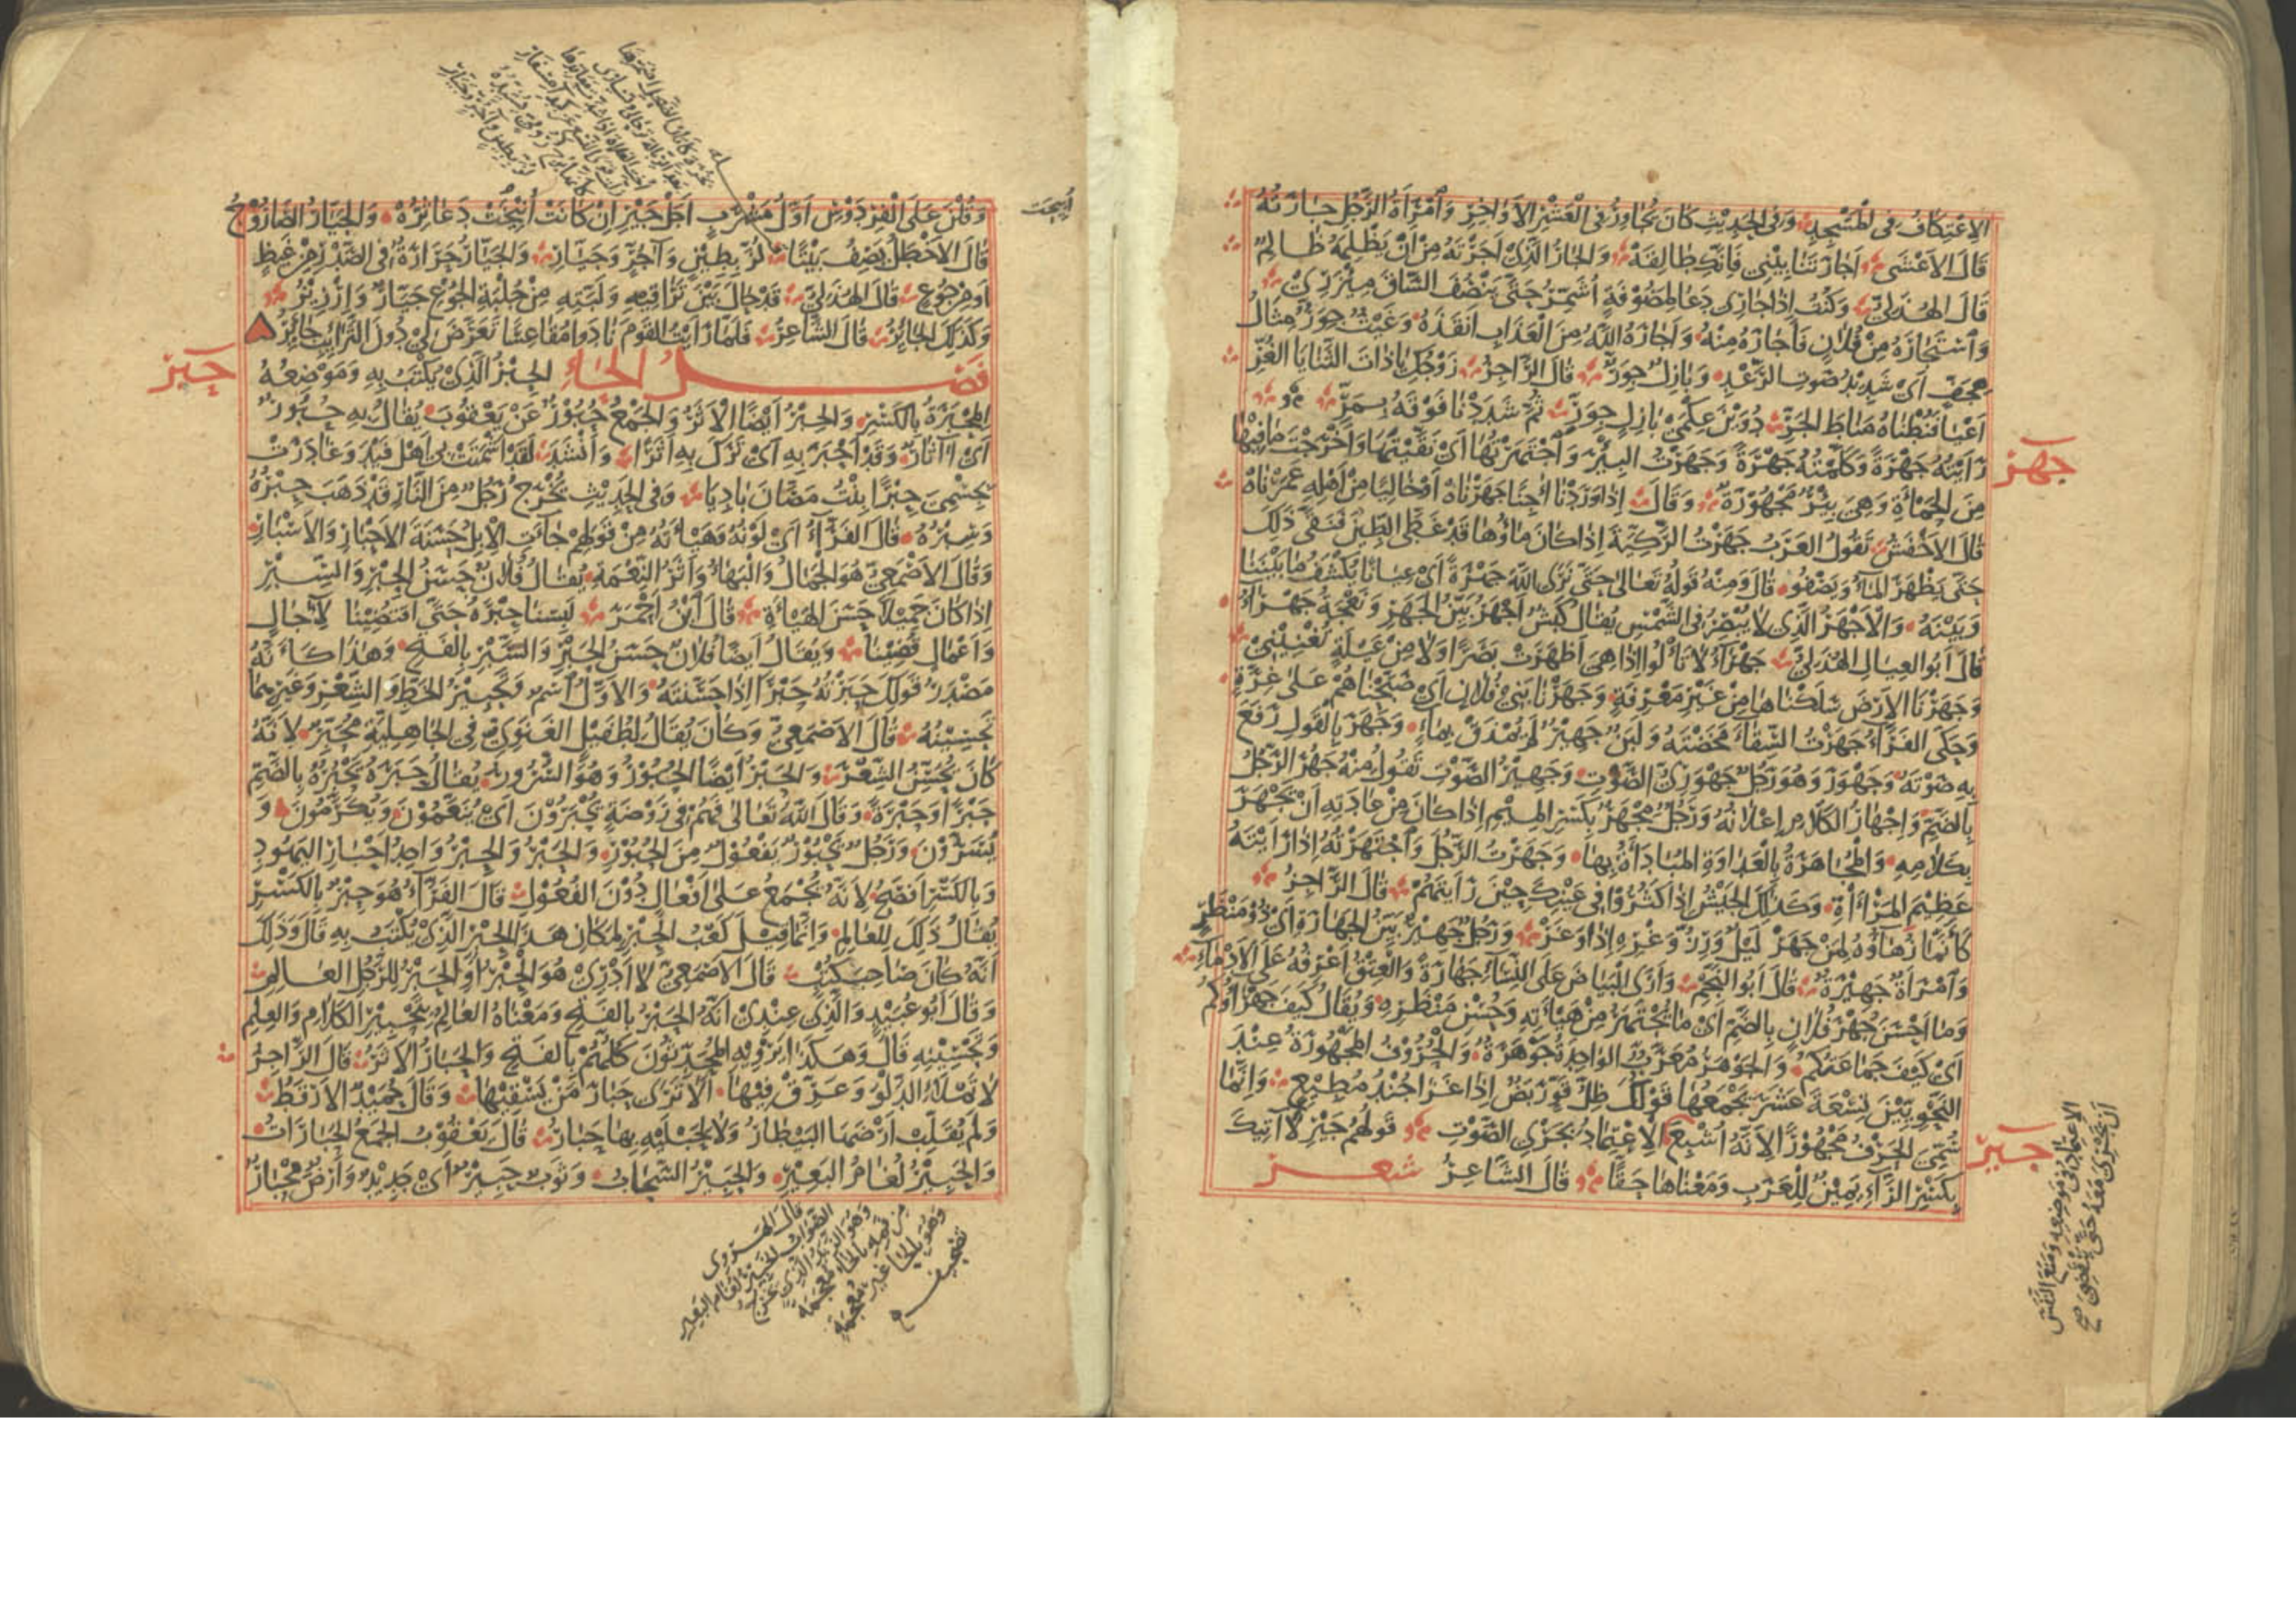 الاِعْتِكَافُ فى الْمَسْجِدِ وَفى الحَدِيْثِ كَانَ يُجَاوِرُ فى العَشْرِ الأَوَاخِرِ وَامْرَأَةُ الرَّجُلِ جَارَتُهُ
قَالَ الاَعْشَى اَجَارَتَنَا بِيْنِي فَاِنَّكِ طَالِقَهْ وَالجَارُ الَّذِى اَجَرْتَهُ مِنْ اَنْ يَظْلِمَهُ ظَالِمٌ
قَالَ الهُذَلِىّ وَكُنْتُ اِذَا جَارِى دَعَا لِمَضُوْفَةٍ اُشَمِّرُ حَتَّى يَنْصُفَ السَّاقَ مِيْزَرِىْ
وَاسْتَجَارَهُ مِنْ فُلَانٍ فَأَجَارَهُ مِنْهُ وَاَجَارَهُ اللّٰهُ مِنَ العَذَابِ اَنْقَذَهُ وَغَيْثٌ جِوَرٌّ مِثَالُ
هِجَفٍّ اَىْ شَدِيْدُ صَوْتِ الرَّعْدِ وَبَازِلٌ جِوَرٌّ قَالَ الرَّاجِزُ زَوْجُكِ يَا ذَاتَ الثَّنَايَا الغُرِّ
اَعْيَا فَنُطْنَاهُ مَنَاطَ الجَرِّ دُوَيْنَ عِكْمَىْ بَازِلٍ جِوَرِّ ثُمَّ شَدَدْنَا فَوْقَهُ بِمَرِّ
جهر
رَأَيْتُهُ جَهْرَةً وَكَلَّمْتُهُ جَهْرَةً وَجَهَرْتُ البِئْرَ وَاجْتَهَرْتُهَا اَىْ نَقَّيْتُهَا وَاَخْرَجْتُ مَا فِيْهَا
مِنَ الحَمْأَةِ وَهِىَ بِئْرٌ مَجْهُوْرَةٌ وَقَالَ اِذَا وَرَدْنَا آجِنًا جَهَرْنَاهُ اَوْ خَالِيًا مِنْ اَهْلِهِ عَمَرْنَاهُ
قَالَ الاَخْفَشُ تَقُولُ العَرَبُ جَهَرْتُ الرَّكِيَّةَ اِذَا كَانَ مَاؤُهَا قَدْ غُطِّىَ الطِّيْنَ فَنَقَّى ذَلِكَ
حَتَّى يَظْهَرَ المَاءُ وَيَصْفُو قَالَ وَمِنْهُ قَوْلُهُ تَعَالَى حَتَّى نَرَى اللّٰهَ جَهْرَةً اَىْ عِيَانًا يَكْشِفُ مَا بَيْنَنَا
وَبَيْنَهُ وَالاَجْهَرُ الَّذِى لَا يُبْصِرُ فى الشَّمْسِ يُقَالُ كَبْشٌ اَجْهَرُ بَيِّنُ الجَهَرِ وَنَعْجَةٌ جَهْرَاءُ
قَالَ اَبُو العِيَالِ الهُذَلِىّ جَهْرَاءُ لَا تَأْلُو اِذَا هِىَ اَظْهَرَتْ بَصَرًا وَلَا مِنْ عَيْلَةٍ تُغْنِيْنِى
وَجَهَرْنَا الاَرْضَ سَلَكْنَاهَا مِنْ غَيْرِ مَعْرِفَةٍ وَجَهَرْنَا بَنِىْ فُلَانٍ اَىْ صَبَّحْنَاهُمْ عَلَى غِرَّةٍ
وَحَكَى الفَرَّاءُ جَهَرْتُ السِّقَاءَ مَخَضْتَهُ وَلَبَنٌ جَهِيْرٌ لَمْ يُمْذَقْ بِمَاءٍ وَجَهَرَ بِالقَوْلِ رَفَعَ
بِهِ صَوْتَهُ وَجَهْوَرَ وَهُوَ رَجُلٌ جَهْوَرِىُّ الصَّوْتِ وَجَهِيْرُ الصَّوْتِ تَقُولُ مِنْهُ جَهُرَ الرَّجُلُ
بِالضَّمِّ وَاِجْهَارُ الكَلَامِ اِعْلَانُهُ وَرَجُلٌ مِجْهَرٌ بِكَسْرِ المِيْمِ اِذَا كَانَ مِنْ عَادَتِهِ اَنْ يَجْهَرَ
بِكَلَامِهِ وَالمُجَاهَرَةُ بِالعَدَاوَةِ المُبَادَأَةُ بِهَا وَجَهَرْتُ الرَّجُلَ وَاجْتَهَرْتُهُ اِذَا رَأَيْتَهُ
عَظِيْمَ المَرْءَاةِ وَكَذَلِكَ الجَيْشُ اِذَا كَثُرُوْا فِى عَيْنِكَ حِيْنَ رَأَيْتَهُمْ قَالَ الرَّاجِزُ
كَأَنَّمَا زُهَاؤُهُ لِمَنْ جَهَرْ لَيْلٌ وَرِزُّ وَغْرِهِ اِذَا وَغَرْ وَرَجُلٌ جَهِيْرٌ بَيِّنُ الجَهَارَةِ اَىْ ذُوْ مَنْظَرٍ
وَامْرَأَةٌ جَهِيْرَةٌ قَالَ اَبُو النَّجْمِ وَاَرَى البَيَاضَ عَلَى النِّسَاءِ جَهَارَةً وَالعِتْقُ اَعْرِفُهُ عَلَى الاَدْمَاءِ
وَمَا اَحْسَنَ جُهْرَ فُلَانٍ بِالضَّمِّ اَىْ مَا يُجْتَهَرُ مِنْ هَيْأَتِهِ وَحُسْنِ مَنْظَرِهِ وَيُقَالُ كَيْفَ جَهْرَاؤُكُمْ
اَىْ كَيْفَ جَمَاعَتُكُمْ وَالجَوْهَرُ مُعَرَّبٌ الوَاحِدُ جَوْهَرَةٌ وَالحُرُوْفُ المَجْهُوْرَةُ عِنْدَ
النَّحْوِيِّيْنَ تِسْعَةَ عَشَرَ يَجْمَعُهَا قَوْلُكَ ظِلُّ قَوٍّ رَبَضٌ اِذَا غَزَا جُنْدٌ مُطِيْعٌ وَاِنَّمَا
سُمِّىَ الحَرْفُ مَجْهُوْرًا لِاَنَّهُ اُشْبِعَ الاِعْتِمَادُ بِجَرْىِ الصَّوْتِ قَوْلُهُمْ جَيْرِ لَا آتِيْكَ
جير
بِكَسْرِ الرَّاءِ يَمِيْنٌ لِلْعَرَبِ وَمَعْنَاهَا حَقًّا قَالَ الشَّاعِرُ شعر
الاعتماد فى موضعه ومنع النفس
ان يجرى معه حتى ينقضى صح
وَقُلْنَ عَلَى الفِرْدَوْسِ اَوَّلَ مَشْرَبٍ اَجَلْ جَيْرِ اِنْ كَانَتْ اُبِيْحَتْ دَعَاثِرُهْ وَالجَيَّارُ الصَّارُوْجُ
ابيحت
قَالَ الاَخْطَلُ يَصِفُ بَيْتًا لُزَّ بِطِيْنٍ وَآجُرٍّ وَجَيَّارِ وَالجَيَّارُ حَرَارَةٌ فى الصَّدْرِ مِنْ غَيْظٍ
اَوْ مِنْ جُوْعٍ قَالَ الهُذَلِىّ قَدْ حَالَ بَيْنَ تَرَاقِيْهِ وَلَبَّتِهِ مِنْ جُلْبَةِ الجُوْعِ جَيَّارٌ وَاِرْزِيْزُ
وَكَذَلِكَ الجَائِرُ قَالَ الشَّاعِرُ فَلَمَّا رَأَيْتُ القَوْمَ نَادَوا مُقَاعِسًا تَعَرَّضَ لِىْ دُوْنَ التَّرَائِبِ جَائِرُ
فصل الحاء الحِبْرُ الَّذِىْ يُكْتَبُ بِهِ وَمَوْضِعُهُ
حبر
المِحْبَرَةُ بِالكَسْرِ وَالحِبْرُ اَيْضًا الاَثَرُ وَالجَمْعُ حُبُوْرٌ عَنْ يَعْقُوْبَ يُقَالُ بِهِ حُبُوْرٌ
اَىْ اٰثَارٌ وَقَدْ اَحْبَرَ بِهِ اَىْ تَرَكَ بِهِ اَثَرًا وَاَنْشَدَ لَقَدْ اَشْمَتَتْ بِىْ اَهْلَ فَيْدٍ وَغَادَرَتْ
بِجِسْمِىَ حِبْرًا بِنْتُ مَصَّانَ بَادِيَا وَفى الحَدِيْثِ يَخْرُجُ رَجُلٌ مِنَ النَّارِ قَدْ ذَهَبَ حِبْرُهُ
وَسِبْرُهُ قَالَ الفَرَّاءُ اَىْ لَوْنُهُ وَهَيْأَتُهُ مِنْ قَوْلِهِمْ جَاءَتِ الاِبِلُ حَسَنَةَ الاَحْبَارِ وَالاَسْبَارِ
وَقَالَ الاَصْمَعِىُّ هُوَ الجَمَالُ وَالبَهَاءُ وَاَثَرُ النِّعْمَةِ يُقَالُ فُلَانٌ حَسَنُ الحِبْرِ وَالسِّبْرِ
اِذَا كَانَ جَمِيْلًا حَسَنَ الهَيْأَةِ قَالَ ابْنُ اَحْمَرَ لَبِسْنَا حِبْرَهُ حَتَّى اقْتُضِيْنَا لِآجَالٍ
وَاَعْمَالٍ قُضِيْنَا وَيُقَالُ اَيْضًا فُلَانٌ حَسَنُ الحَبْرِ وَالسَّبْرِ بِالفَتْحِ وَهَذَا كَأَنَّهُ
مَصْدَرُ قَوْلِكَ حَبَرْتُهُ حَبْرًا اِذَا حَسَّنْتَهُ وَالاَوَّلُ اسْمٌ وَتَحْبِيْرُ الخَطِّ وَالشِّعْرِ وَغَيْرِهِمَا
تَحْسِيْنُهُ قَالَ الاَصْمَعِىُّ وَكَانَ يُقَالُ لِطُفَيْلٍ الغَنَوِىِّ فى الجَاهِلِيَّةِ مُحَبِّرٌ لِاَنَّهُ
كَانَ يُحَسِّنُ الشِّعْرَ وَالحَبْرُ اَيْضًا الحُبُوْرُ وَهُوَ السُّرُورُ يُقَالُ حَبَرَهُ يَحْبُرُهُ بِالضَّمِّ
حَبْرًا وَحَبْرَةً وَقَالَ اللّٰهُ تَعَالَى فَهُمْ فى رَوْضَةٍ يُحْبَرُوْنَ اَىْ يُنَعَّمُوْنَ وَيُكَرَّمُونَ وَ
يُسَرُّوْنَ وَرَجُلٌ يَحْبُوْرٌ يَفْعُوْلٌ مِنَ الحُبُوْرِ وَالحَبْرُ وَالحِبْرُ وَاحِدُ اَحْبَارِ اليَهُودِ
وَبِالكَسْرِ اَفْصَحُ لِاَنَّهُ يُجْمَعُ عَلَى اَفْعَالٍ دُوْنَ الفُعُوْلِ قَالَ الفَرَّاءُ هُوَ حِبْرٌ بِالكَسْرِ
يُقَالُ ذَلِكَ لِلْعَالِمِ وَاِنَّمَا قِيْلَ كَعْبُ الحِبْرِ لِمَكَانِ هَذَا الحِبْرِ الَّذِىْ يُكْتَبُ بِهِ قَالَ وَذَلِكَ
اَنَّهُ كَانَ صَاحِبَ كُتُبٍ قَالَ الاَصْمَعِىُّ لَا اَدْرِىْ هُوَ الحِبْرُ اَوِ الحَبْرُ لِلرَّجُلِ العَالِمِ
وَقَالَ اَبُو عُبَيْدٍ وَالَّذِىْ عِنْدِىْ اَنَّهُ الحَبْرُ بِالفَتْحِ وَمَعْنَاهُ العَالِمُ بِتَحْبِيْرِ الكَلَامِ وَالعِلْمِ
وَتَحْسِيْنِهِ قَالَ وَهَكَذَا يَرْوِيْهِ المُحَدِّثُونَ كُلُّهُمْ بِالفَتْحِ وَالحَبَارُ الاَثَرُ قَالَ الرَّاجِزُ
لَا تَمْلَأِ الدَّلْوَ وَعَرِّقْ فِيْهَا اَلَا تَرَى حَبَارَ مَنْ يَسْقِيْهَا وَقَالَ حُمَيْدٌ الاَرْقَطُ
وَلَمْ يُقَلِّبْ اَرْضَهَا البَيْطَارُ وَلَا لِحَبْلَيْهِ بِهَا حَبَارُ قَالَ يَعْقُوْبُ الجَمْعُ الحَبَارَاتُ
وَالحَبِيْرُ لُغَامُ البَعِيْرِ وَالحَبِيْرُ السَّحَابُ وَثَوْبٌ حَبِيْرٌ اَىْ جَدِيْدٌ وَاَرْضٌ مِحْبَارٌ
قال الهروى
الصواب الخبير لغام البعير
وهو الزبد الذى يخرج
من فيه بالخاء معجمة
وهو بالحاء غير معجمة
تصحيف